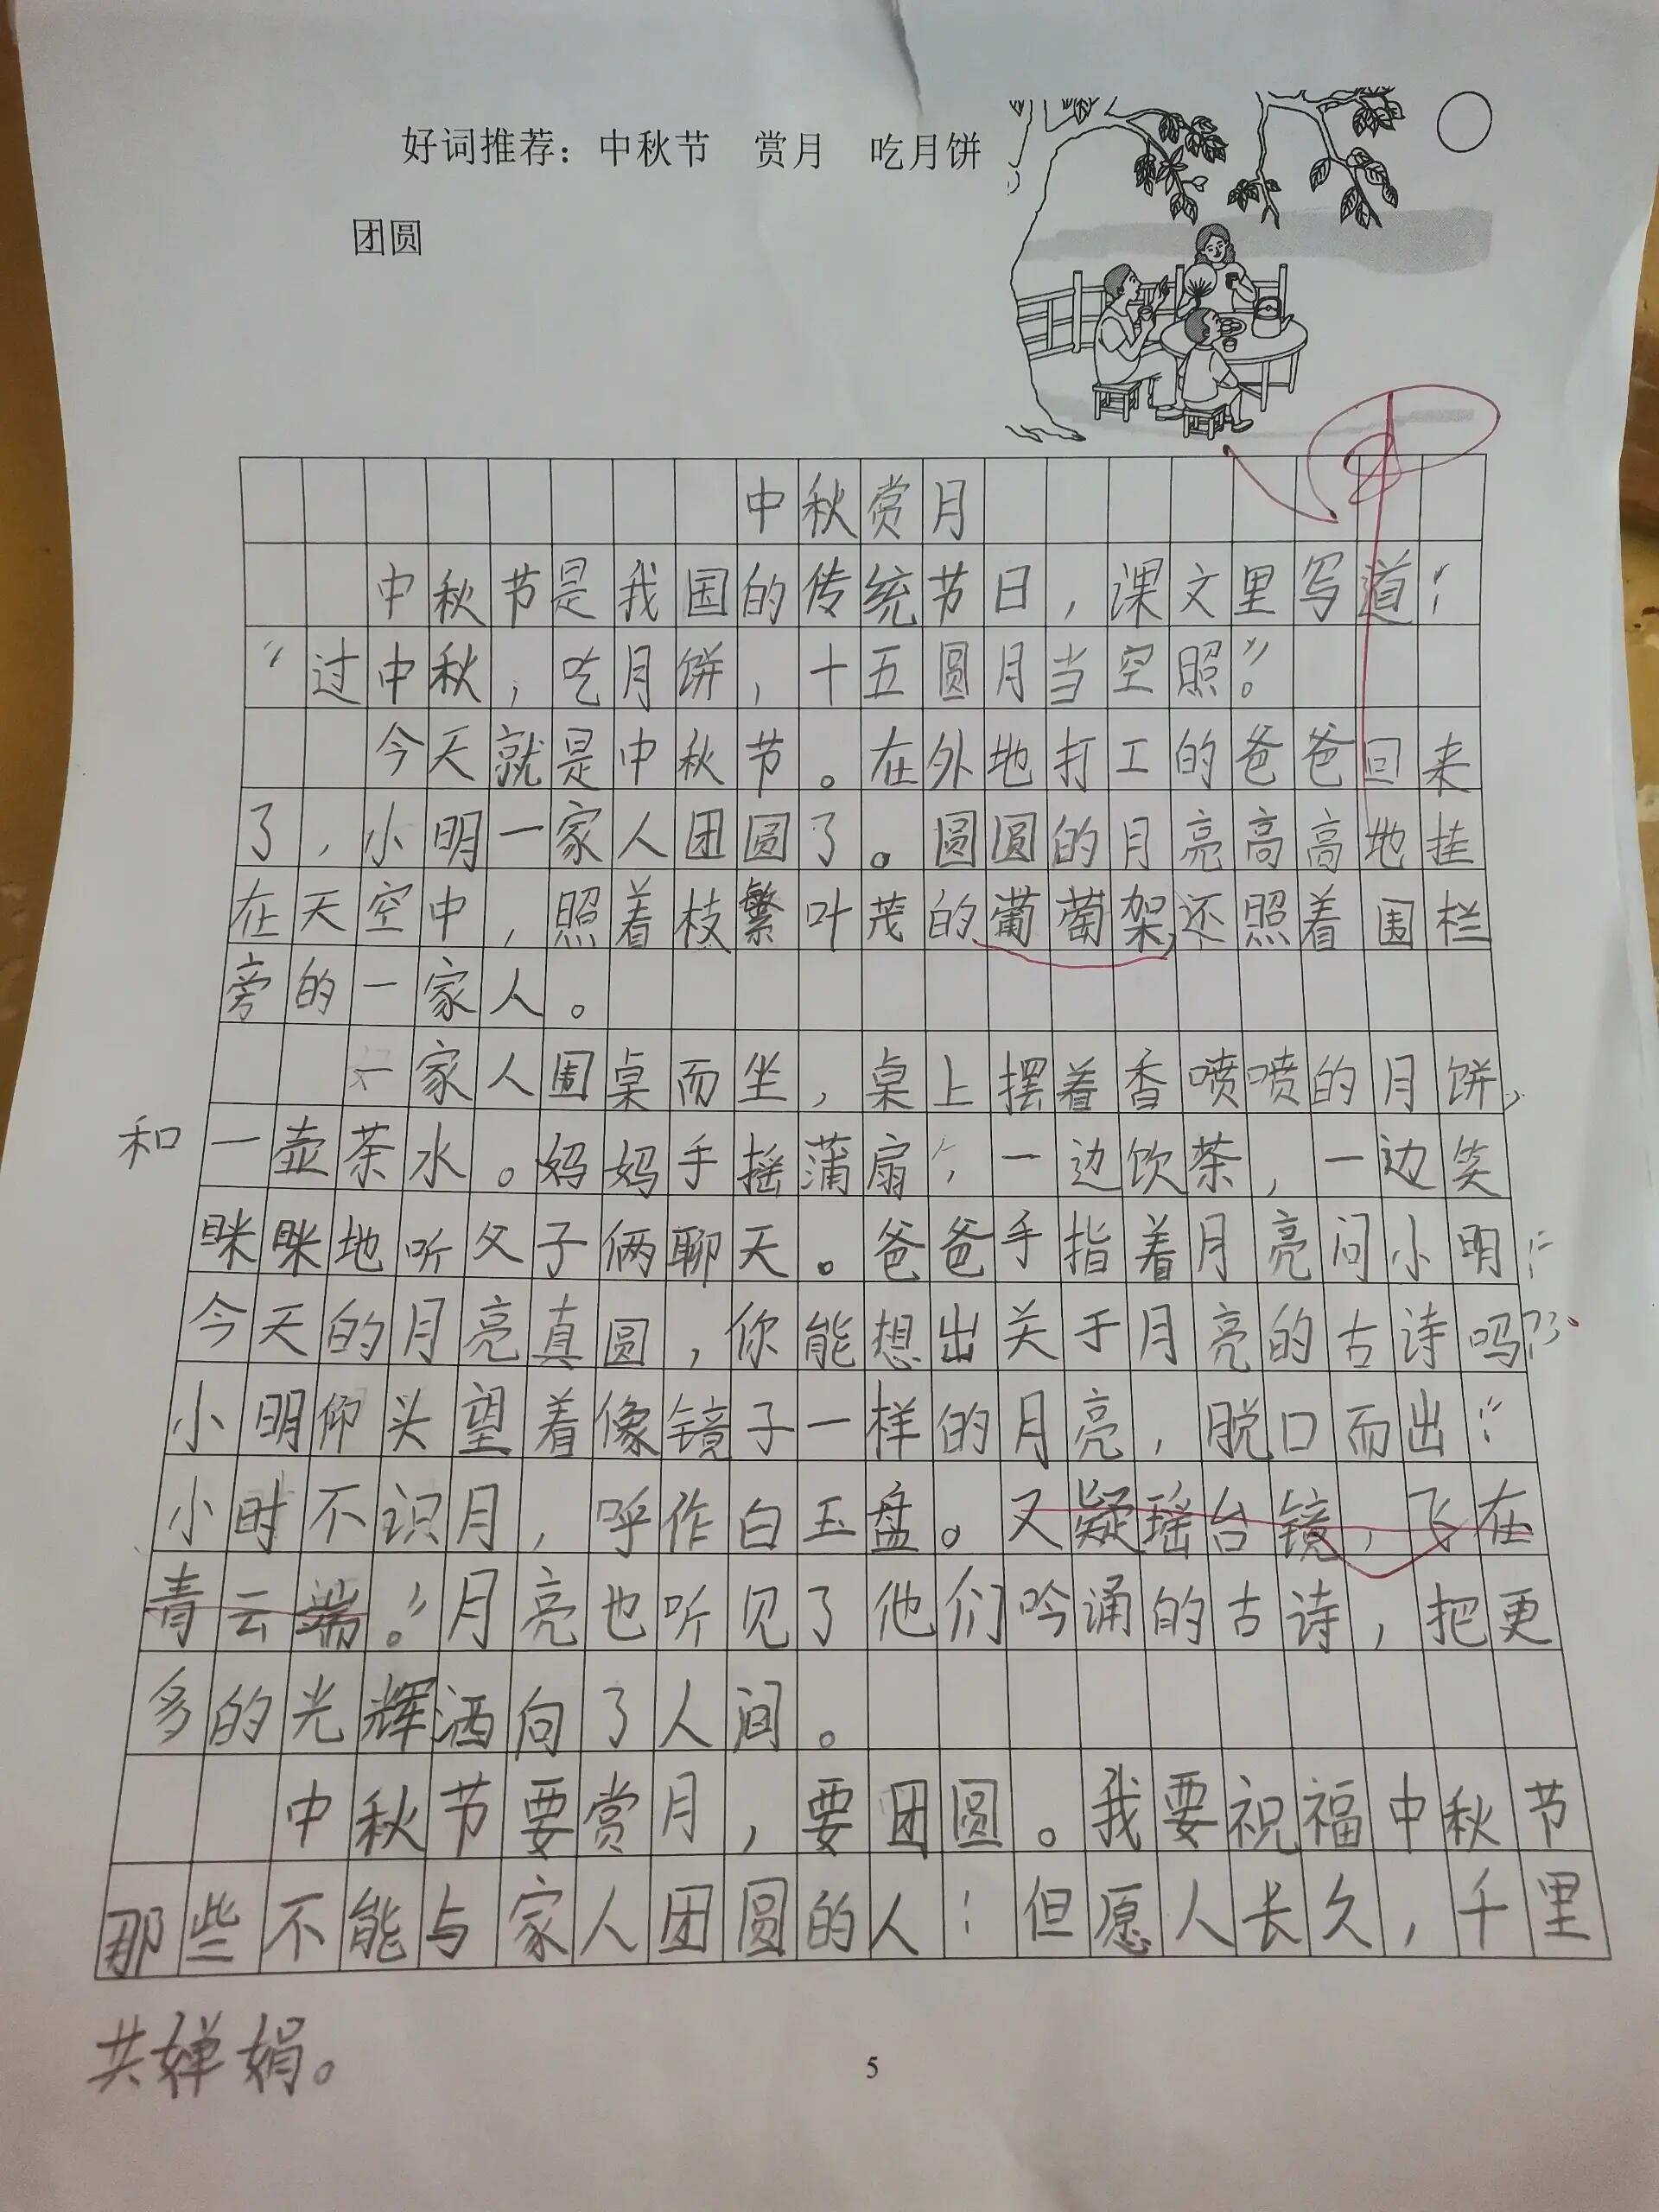 好词推荐：中秋节 赏月 吃月饼
团圆
中秋赏月
中秋节是我国的传统节日，课文里写道：
“过中秋，吃月饼，十五圆月当空照。”
今天就是中秋节。在外地打工的爸爸回来
了，小明一家人团圆了。圆圆的月亮高高地挂
在天空中，照着枝繁叶茂的葡萄架，还照着围栏
旁的一家人。
一家人围桌而坐，桌上摆着香喷喷的月饼，
和一壶茶水。妈妈手摇蒲扇，一边饮茶，一边笑
眯眯地听父子俩聊天。爸爸手指着月亮问小明：“
今天的月亮真圆，你能想出关于月亮的古诗吗？”
小明仰头望着像镜子一样的月亮，脱口而出：“
小时不识月，呼作白玉盘。又疑瑶台镜，飞在
青云端。”月亮也听见了他们吟诵的古诗，把更
多的光辉洒向了人间。
中秋节要赏月，要团圆。我要祝福中秋节
那些不能与家人团圆的人：但愿人长久，千里
共婵娟。
5